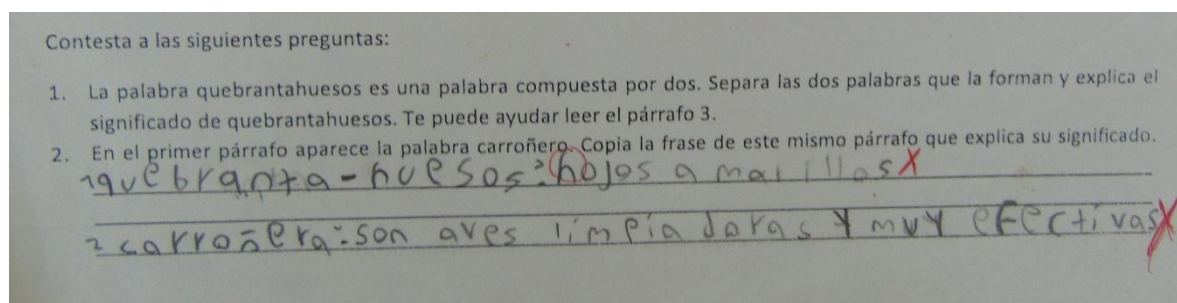 Contesta a las siguientes preguntas:
1. La palabra quebrantahuesos es una palabra compuesta por dos. Separa las dos palabras que la forman y explica el
significado de quebrantahuesos. Te puede ayudar leer el párrafo 3.
2. En el primer párrafo aparece la palabra carroñero. Copia la frase de este mismo párrafo que explica su significado.
1 quebranta-huesos: hojos amarillos X
2 carroñera: son aves limpiadoras y muy efectivas X